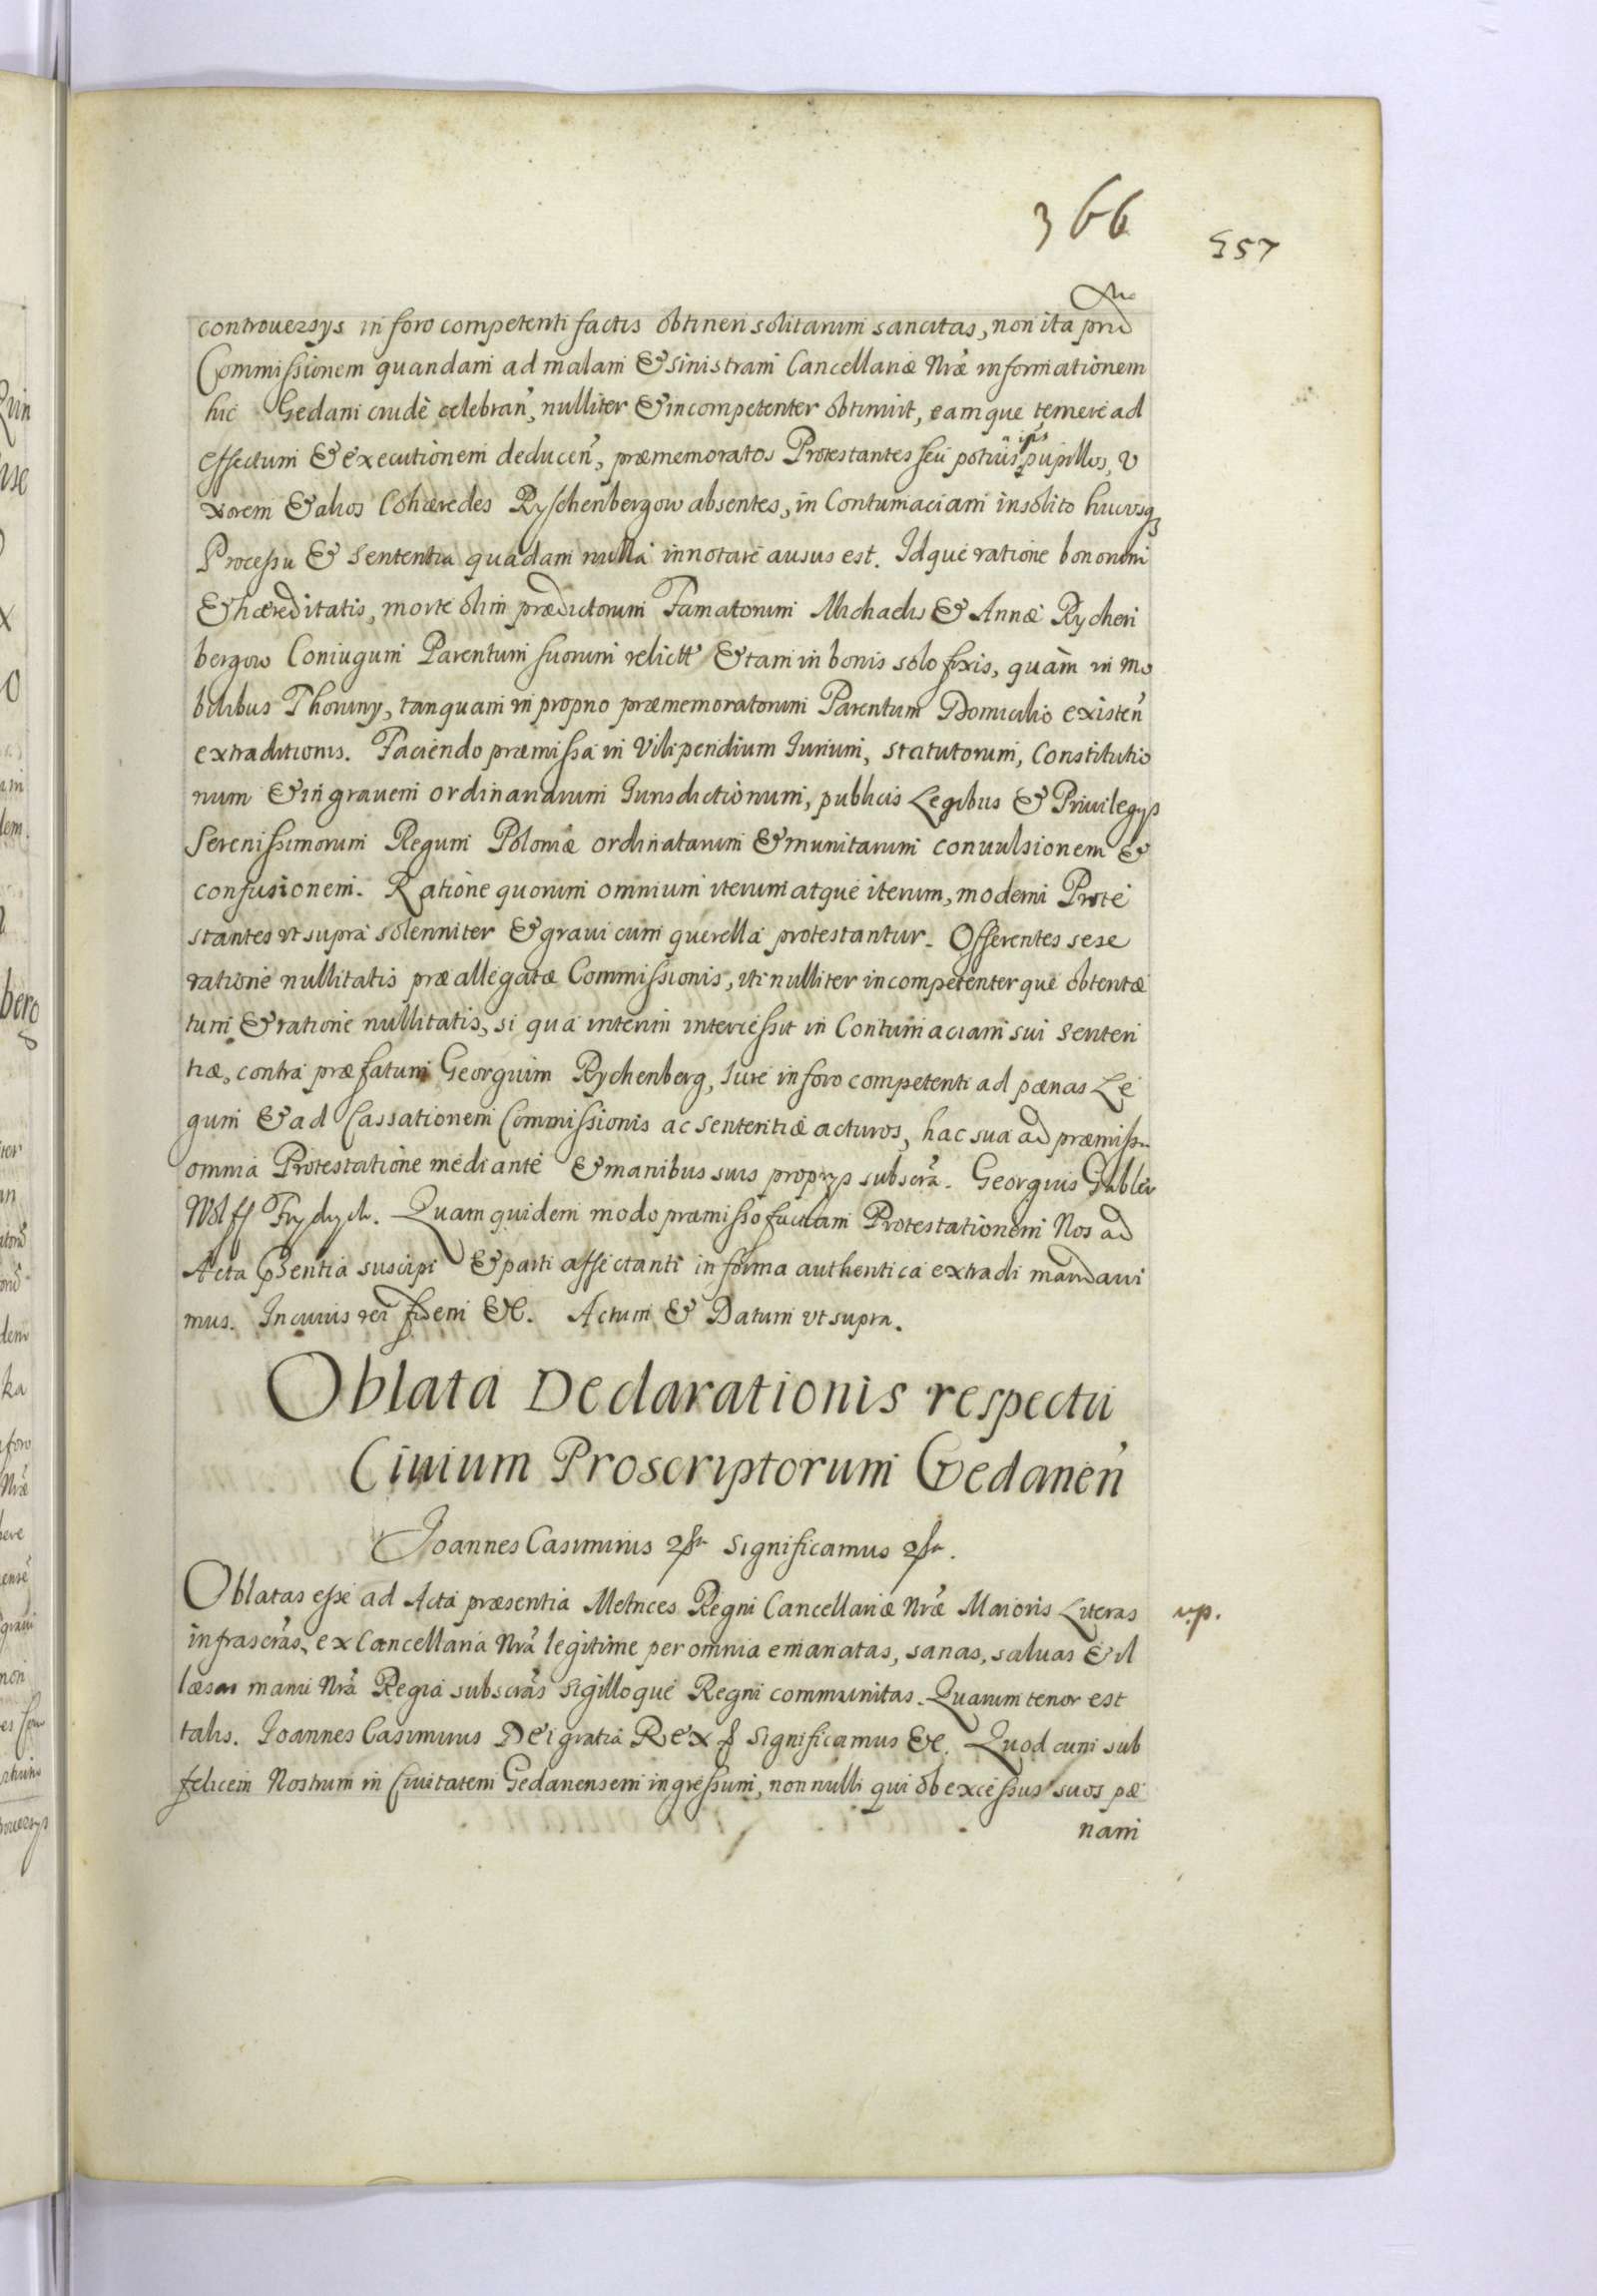 366
557
controuersys in foro competenti factis obtineri solitarum sancitas, non ita prid
Commissionem quandam ad malam & sinistram Cancellariæ Nræ informationem
hic Gedani crudè celebran, nulliter & incompetenter obtinuit, eamque temere ad
effectum & executionem deducen, præmemoratos Protestantes seu potius pupillos, v
xorem & alios Cohæredes Ryschenbergow absentes, in Contumaciam insolito hucusq3
Processu & sententia quadam nulla innotare ausus est. Idque ratione bonorum
& hæreditatis, morte olim prædictorum Famatorum Michaelis & Annæ Rychen
bergow Coniugum Parentum suorum relict & tam in bonis solo fixis, quàm in mo
bilibus Thoruny, tanquam in proprio præmemoratorum Parentum Domicilio existen
extraditionis. Faciendo præmissa in Vilipendium Iurium, statutorum, Constitutio
num & in grauem ordinariarum Iurisdictionum, publicis Legibus & Priuilegys
Serenissimorum Regum Poloniæ ordinatarum & munitarum conuulsionem &
confusionem. Ratione quorum omnium iterum atque iterum, moderni Prote
stantes vt supra solenniter & graui cum querella protestantur. Offerentes sese
ratione nullitatis præallegatæ Commissionis, vti nulliter incompetenterque obtentæ
tum & ratione nullitatis, si qua interim intercessit in Contumaciam sui senten
tiæ, contra præfatum Georgium Rychenberg, Iure in foro competenti ad pænas Le
gum & ad Cassationem Commissionis ac sententiæ acturos, hac sua ad præmissa
omnia Protestatione mediante & manibus suis proprys subscra. Georgius Gabler
Wolff Frydrych. Quam quidem modo præmisso factam Protestationem Nos ad
Acta præsentia suscipi & parti affectanti in forma authentica extradi mandaui
mus. In cuius rei fidem &c. Actum & Datum vt supra.
Oblata Declarationis respectu
Ciuium Proscriptorum Gedanen
Joannes Casimirus &c significamus &c.
Oblatas esse ad Acta præsentia Metrices Regni Cancellariæ Nræ Maioris Literas
v.p.
infrascras, ex Cancellaria Nra legitime per omnia emanatas, sanas, saluas & il
læsas manu Nra Regia subscras Sigilloque Regni communitas. Quarum tenor est
talis. Joannes Casimirus Dei gratia Rex & significamus &c. Quod cum sub
felicem Nostrum in Ciuitatem Gedanensem ingressum, nonnulli qui ob excessus suos pæ
nam